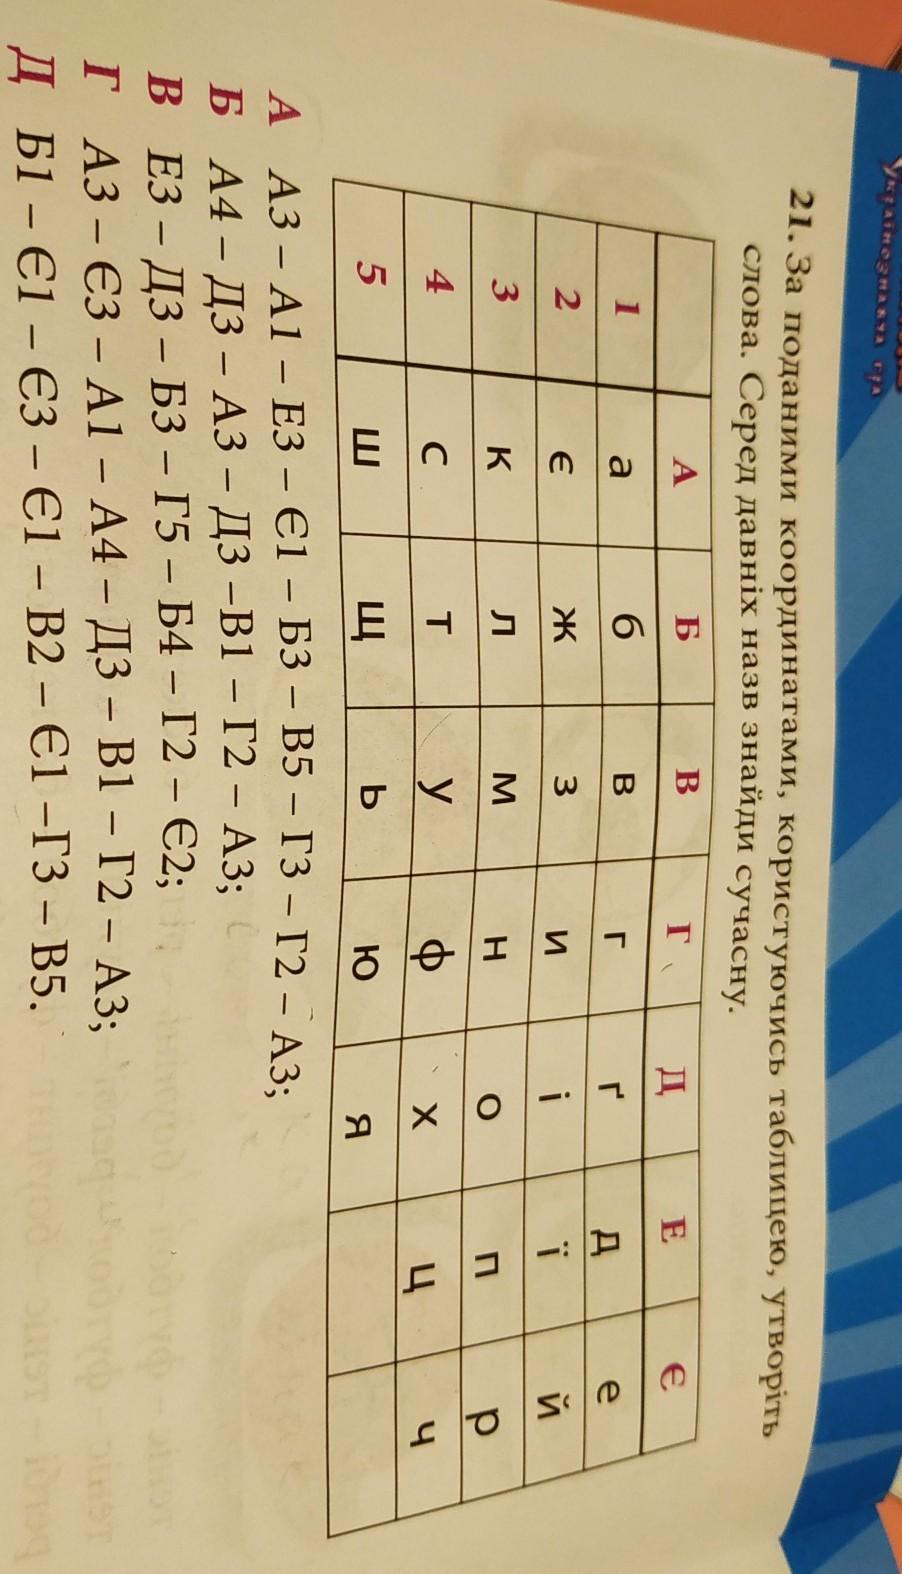 Українознавча гра
21. За поданими координатами, користуючись таблицею, утворіть
слова. Серед давніх назв знайди сучасну.
А Б В Г Д Е Є
1 а б в г ґ д е
2 є ж з и і ї й
3 к л м н о п р
4 с т у ф х ц ч
5 ш щ ь ю я
А А3 – А1 – Е3 – Є1 – Б3 – В5 – Г3 – Г2 – А3;
Б А4 – Д3 – А3 – Д3 –В1 – Г2 – А3;
В Е3 – Д3 – Б3 – Г5 – Б4 – Г2 – Є2;
Г А3 – Є3 – А1 – А4 – Д3 – В1 – Г2 – А3;
Д Б1 – Є1 – Є3 – Є1 – В2 – Є1 –Г3 – В5.